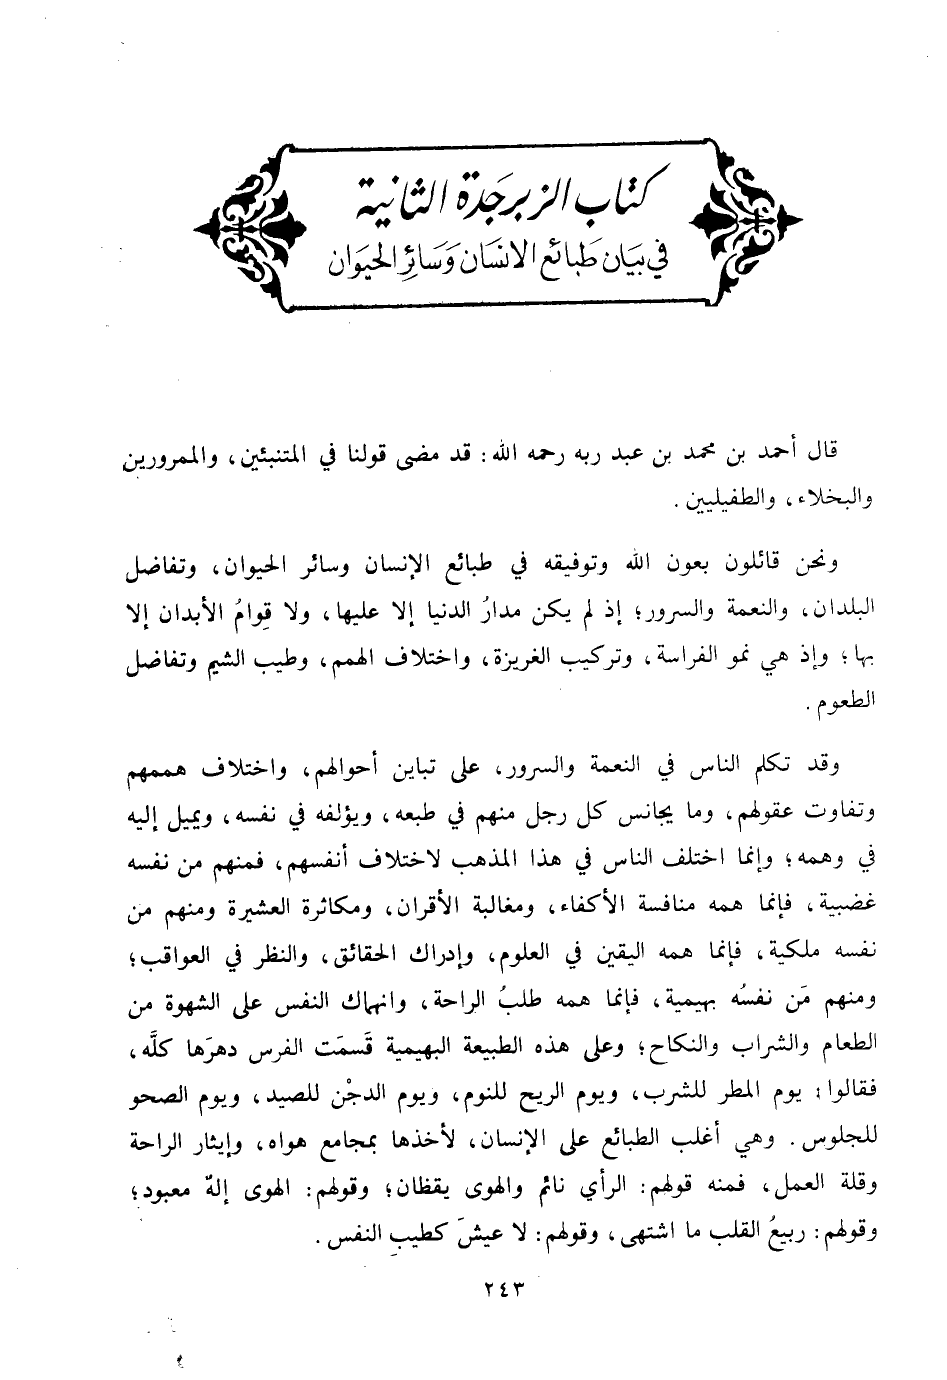 كتاب الزبرجدة الثانية
في بيان طبائع الانسان وسائر الحيوان
قال أحمد بن محمد بن عبد ربه رحمه الله: قد مضى قولنا في المتنبئين، والممرورين
والبخلاء، والطفيليين.
ونحن قائلون بعون الله وتوفيقه في طبائع الإنسان وسائر الحيوان، وتفاضل
البلدان، والنعمة والسرور؛ إذ لم يكن مدارُ الدنيا إلا عليها، ولا قِوامُ الأبدان إلا
بها؛ وإذ هي نمو الفراسة، وتركيب الغريزة، واختلاف الهمم، وطيب الشيم وتفاضل
الطعوم.
وقد تكلم الناس في النعمة والسرور، على تباين أحوالهم، واختلاف هممهم
وتفاوت عقولهم، وما يجانس كل رجل منهم في طبعه، ويؤلفه في نفسه، ويميل إليه
في وهمه؛ وإنما اختلف الناس في هذا المذهب لاختلاف أنفسهم، فمنهم من نفسه
غضبية، فإنما همه منافسة الأكفاء، ومغالبة الأقران، ومكاثرة العشيرة ومنهم من
نفسه ملكية، فإنما همه اليقين في العلوم، وإدراك الحقائق، والنظر في العواقب؛
ومنهم مَن نفسُه بهيمية، فإنما همه طلبُ الراحة، وانهماك النفس على الشهوة من
الطعام والشراب والنكاح؛ وعلى هذه الطبيعة البهيمية قَسمَت الفرس دهرَها كلَّه،
فقالوا: يوم المطر للشرب، ويوم الريح للنوم، ويوم الدجْن للصيد، ويوم الصحو
للجلوس. وهي أغلب الطبائع على الإنسان، لأخذها بمجامع هواه، وإيثار الراحة
وقلة العمل، فمنه قولهم: الرأي نائم والهوى يقظان؛ وقولهم: الهوى إلهٌ معبود؛
وقولهم: ربيعُ القلب ما اشتهى، وقولهم: لا عيشَ كطيبِ النفس.
٢٤٣